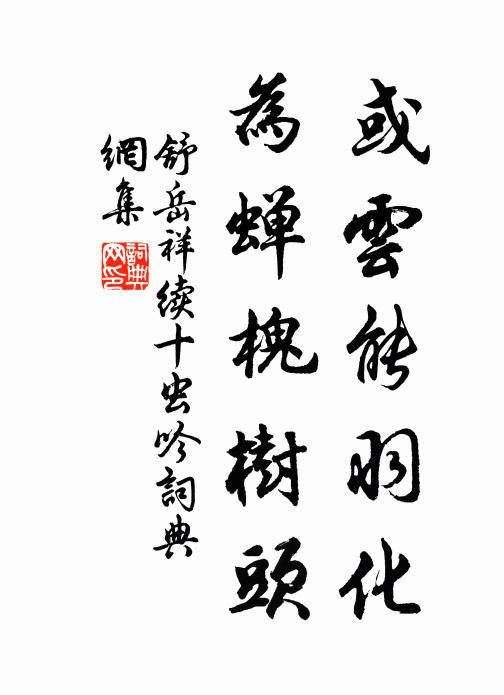 或雲能羽化
為蝉槐樹頭
舒岳祥續十虫吟詞典
網集
詞典
网印